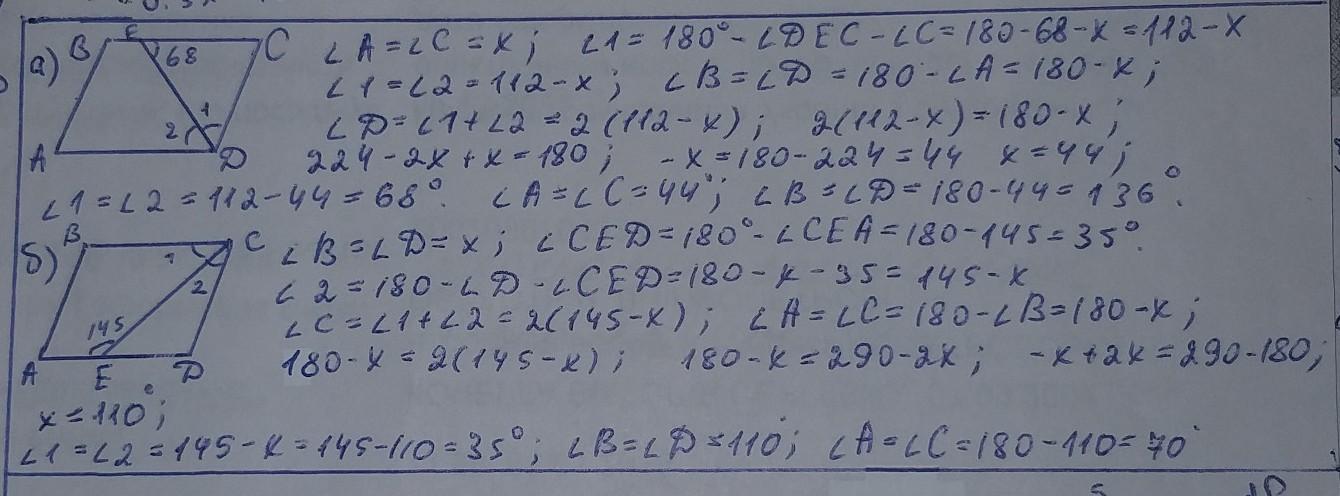 а) B E C 68 1 2 A D
∠A = ∠C = x; ∠1 = 180° - ∠DEC - ∠C = 180 - 68 - x = 112 - x
∠1 = ∠2 = 112 - x; ∠B = ∠D = 180 - ∠A = 180 - x;
∠D = ∠1 + ∠2 = 2(112 - x); 2(112 - x) = 180 - x;
224 - 2x + x = 180; -x = 180 - 224 = 44 x = 44;
∠1 = ∠2 = 112 - 44 = 68°. ∠A = ∠C = 44°; ∠B = ∠D = 180 - 44 = 136°.
б) B C 1 2 145 A E D
∠B = ∠D = x; ∠CED = 180° - ∠CEA = 180 - 145 = 35°.
∠2 = 180 - ∠D - ∠CED = 180 - x - 35 = 145 - x
∠C = ∠1 + ∠2 = 2(145 - x); ∠A = ∠C = 180 - ∠B = 180 - x;
180 - x = 2(145 - x); 180 - x = 290 - 2x; -x + 2x = 290 - 180;
x = 110°;
∠1 = ∠2 = 145 - x = 145 - 110 = 35°; ∠B = ∠D = 110°; ∠A = ∠C = 180 - 110 = 70°